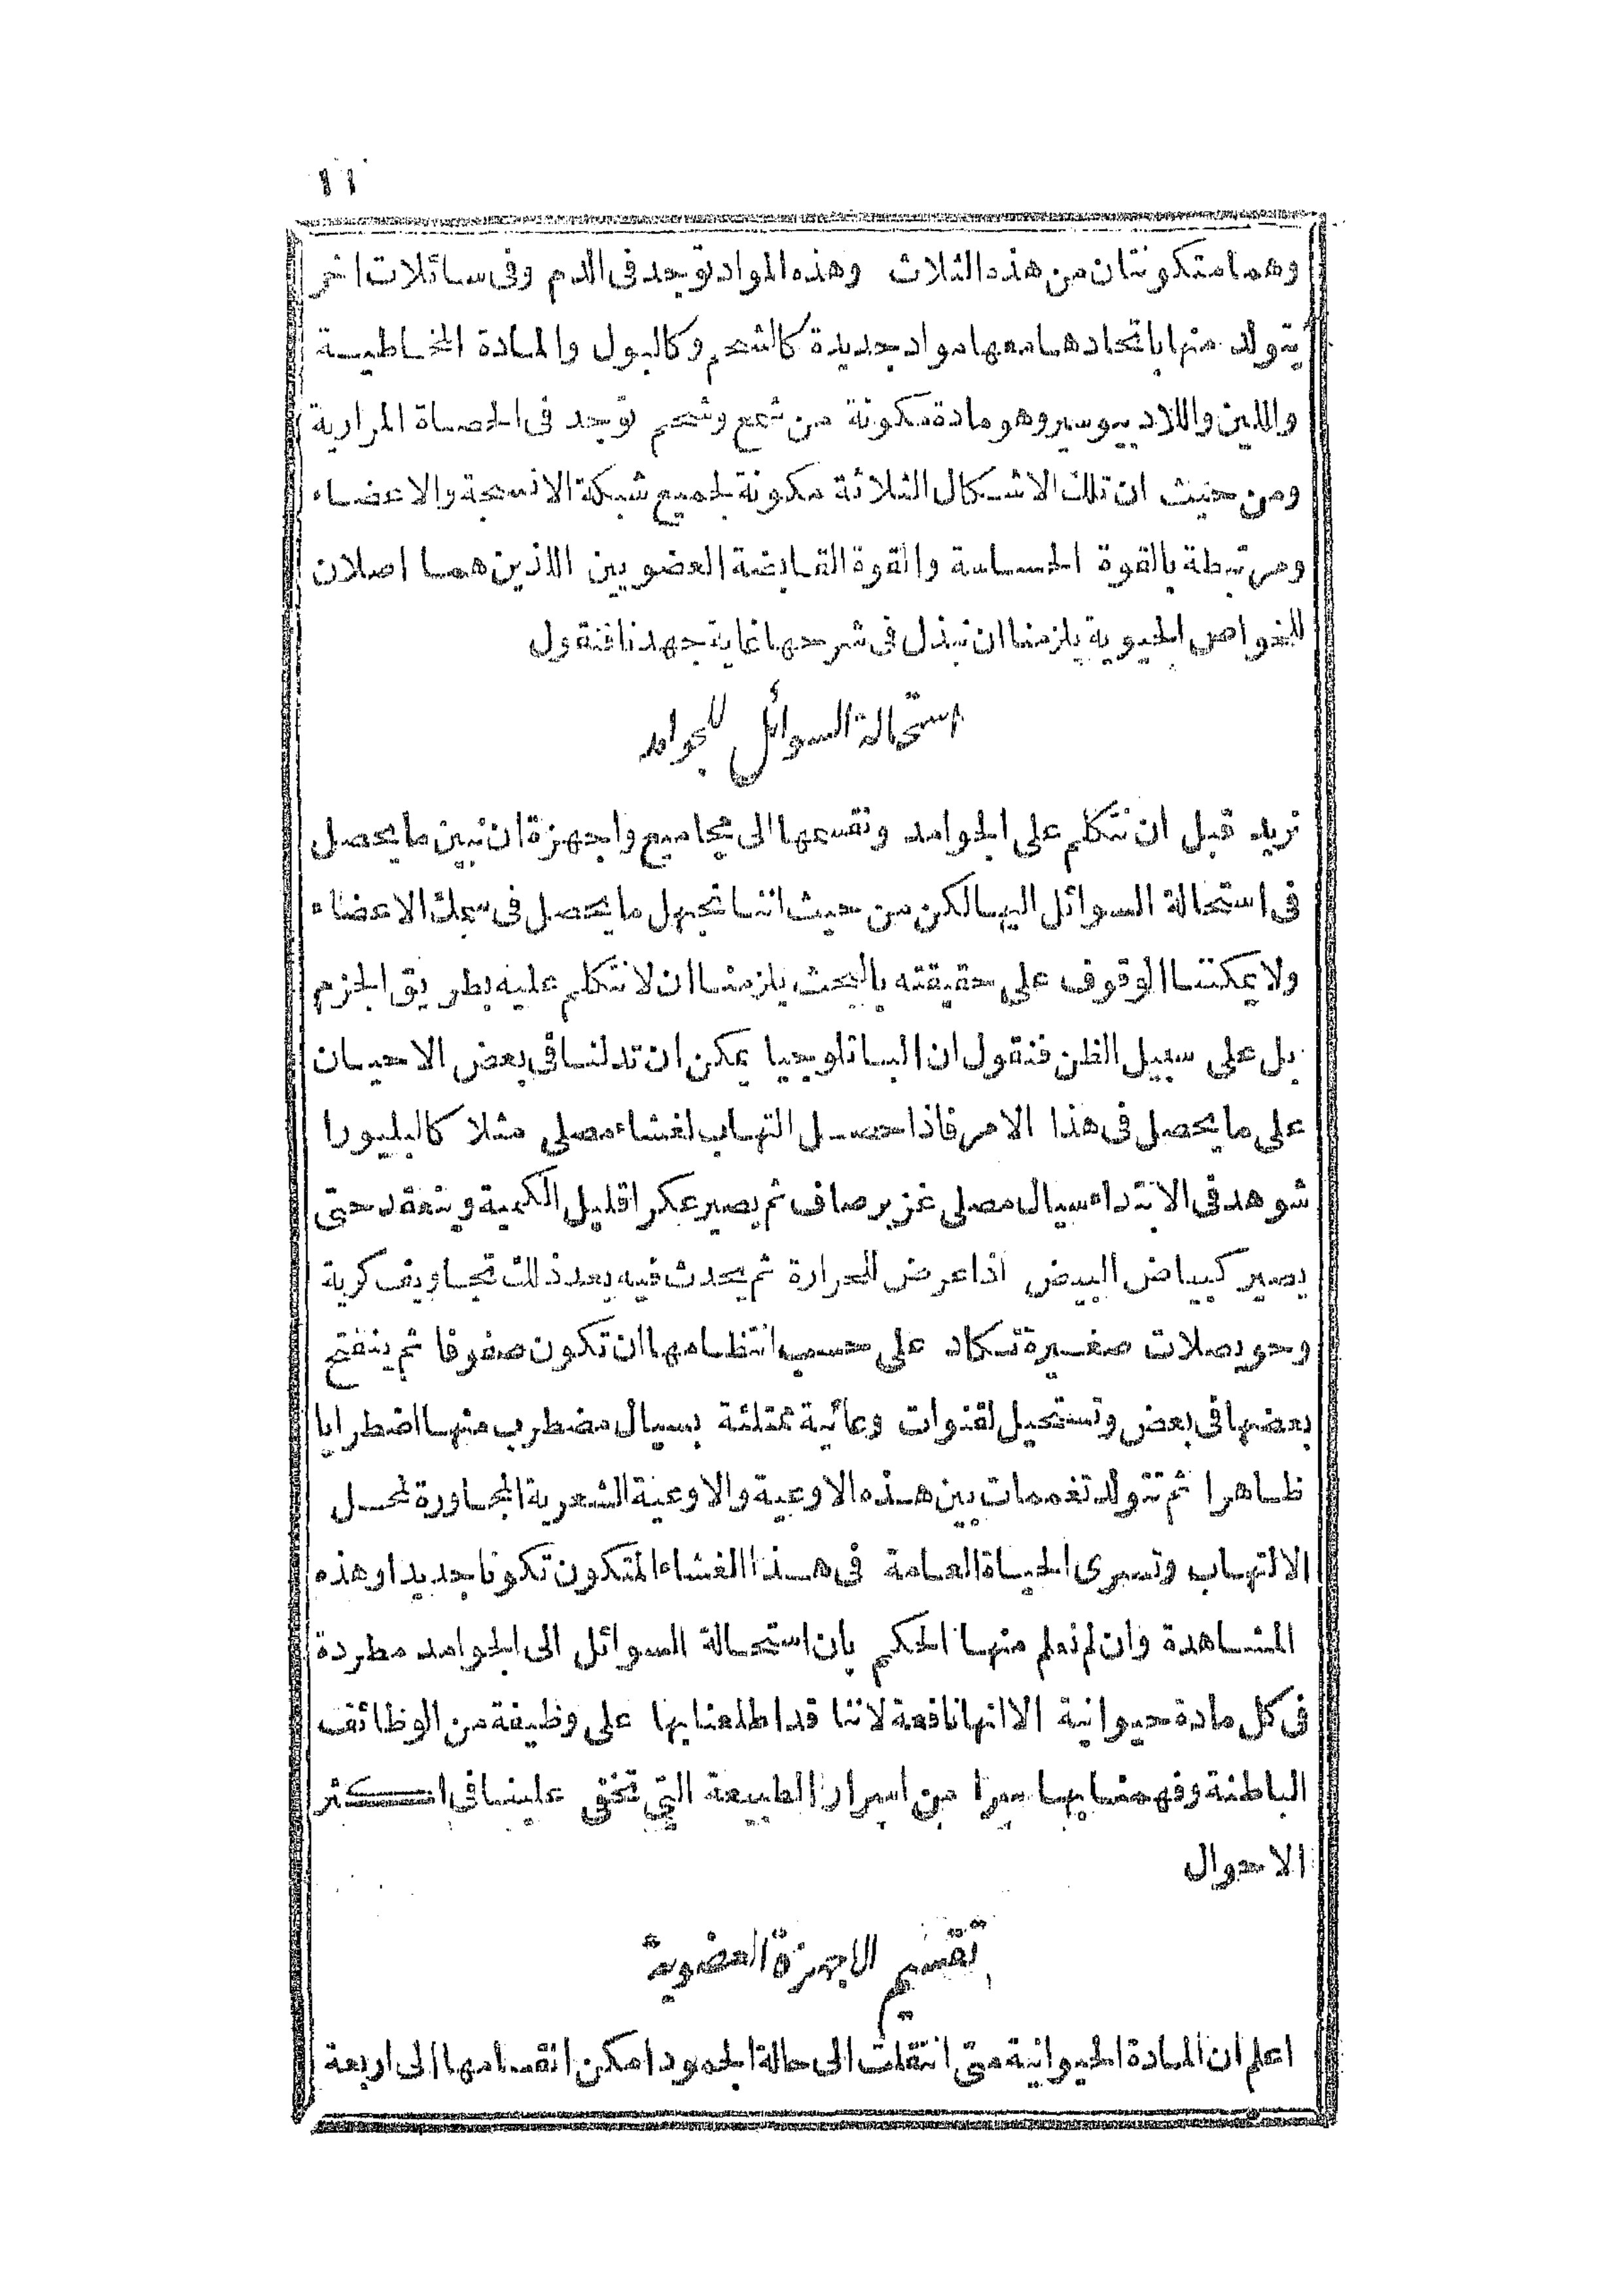 ١١
وهما متكونتان من هذه الثلاث وهذه المواد توجد فى الدم وفى سائلات اخر
يتولد منها باتحادها معها مواد جديدة كالشحم وكالبول والمادة المخاطية
واللبن واللاديبوسير وهو مادة مكونة من شمع وشحم توجد فى الحصاة المرارية
ومن حيث ان تلك الاشكال الثلاثة مكونة لجميع شبكة الانسجة والاعضاء
ومرتبطة بالقوة الحساسة والقوة القابضة العضويين اللذين هما اصلان
للخواص الحيوية يلزمنا ان نبذل فى شرحها غاية جهدنا فنقول
استحالة السوائل للجوامد
نريد قبل ان نتكلم على الجوامد ونقسمها الى مجاميع واجهزة ان نبين ما يحصل
فى استحالة السوائل اليها لكن من حيث اننا نجهل ما يحصل فى سمك الاعضاء
ولا يمكننا الوقوف على حقيقته بالبحث يلزمنا ان لا نتكلم عليه بطريق الجزم
بل على سبيل الظن فنقول ان الباتلوجيا يمكن ان تدلنا فى بعض الاحيان
على ما يحصل فى هذا الامر فاذا حصل التهاب لغشاء مصلى مثلا كالبليورا
شوهد فى الابتداء سيال مصلى غزير صاف ثم يصير عكرا قليل الكمية وينعقد حتى
يصير كبياض البيض اذا عرض للحرارة ثم يحدث فيه بعد ذلك تجاويف كرية
وحويصلات صغيرة تكاد على حسب انتظامها ان تكون صفوفا ثم ينفتح
بعضها فى بعض وتستحيل لقنوات وعائية ممتلئة بسيال مضطرب منها اضطرابا
ظاهرا ثم تتولد تفممات بين هذه الاوعية والاوعية الشعرية المجاورة لمحل
الالتهاب وتسرى الحياة العامة فى هذا الغشاء المتكون تكونا جديدا وهذه
المشاهدة وان لم نعلم منها الحكم بان استحالة السوائل الى الجوامد مطردة
فى كل مادة حيوانية الا انها نافعة لاننا قد اطلعنا بها على وظيفة من الوظائف
الباطنة وفهمنا بها سرا من اسرار الطبيعة التى تخفى علينا فى اكثر
الاحوال
تقسيم الاجهزة العضوية
اعلم ان المادة الحيوانية متى انتقلت الى حالة الجمود امكن انقسامها الى اربعة